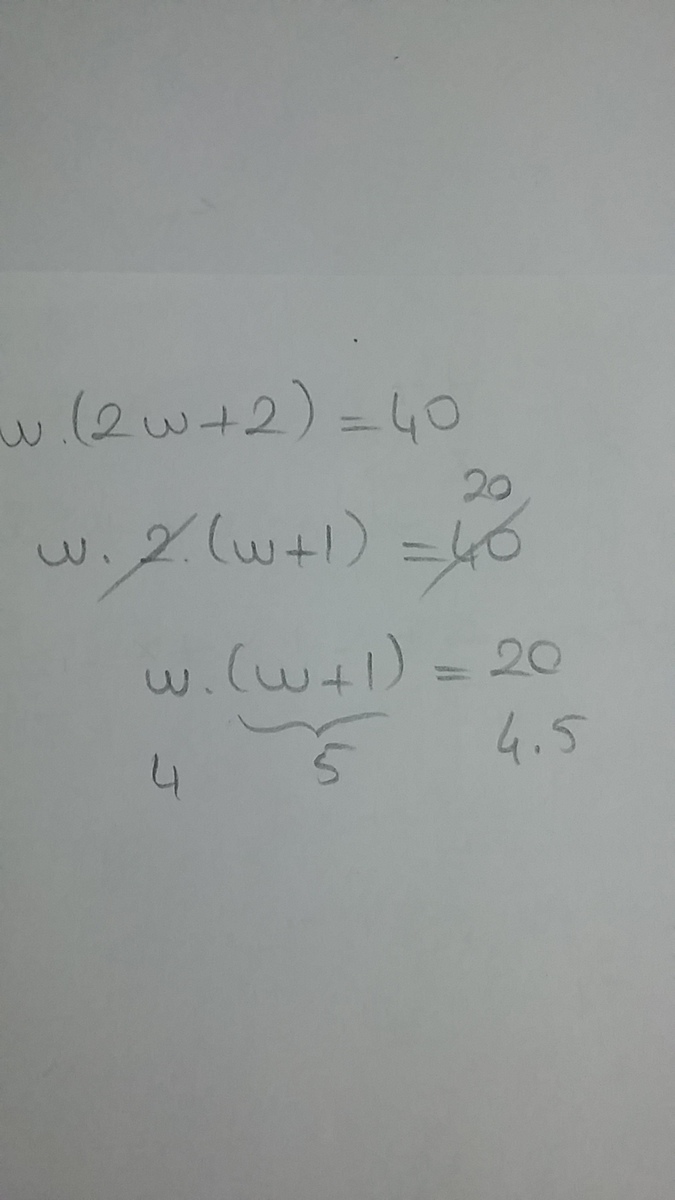 w.(2w+2)=40
20
w.2.(w+1)=40
w.(w+1)=20
4 5 4.5